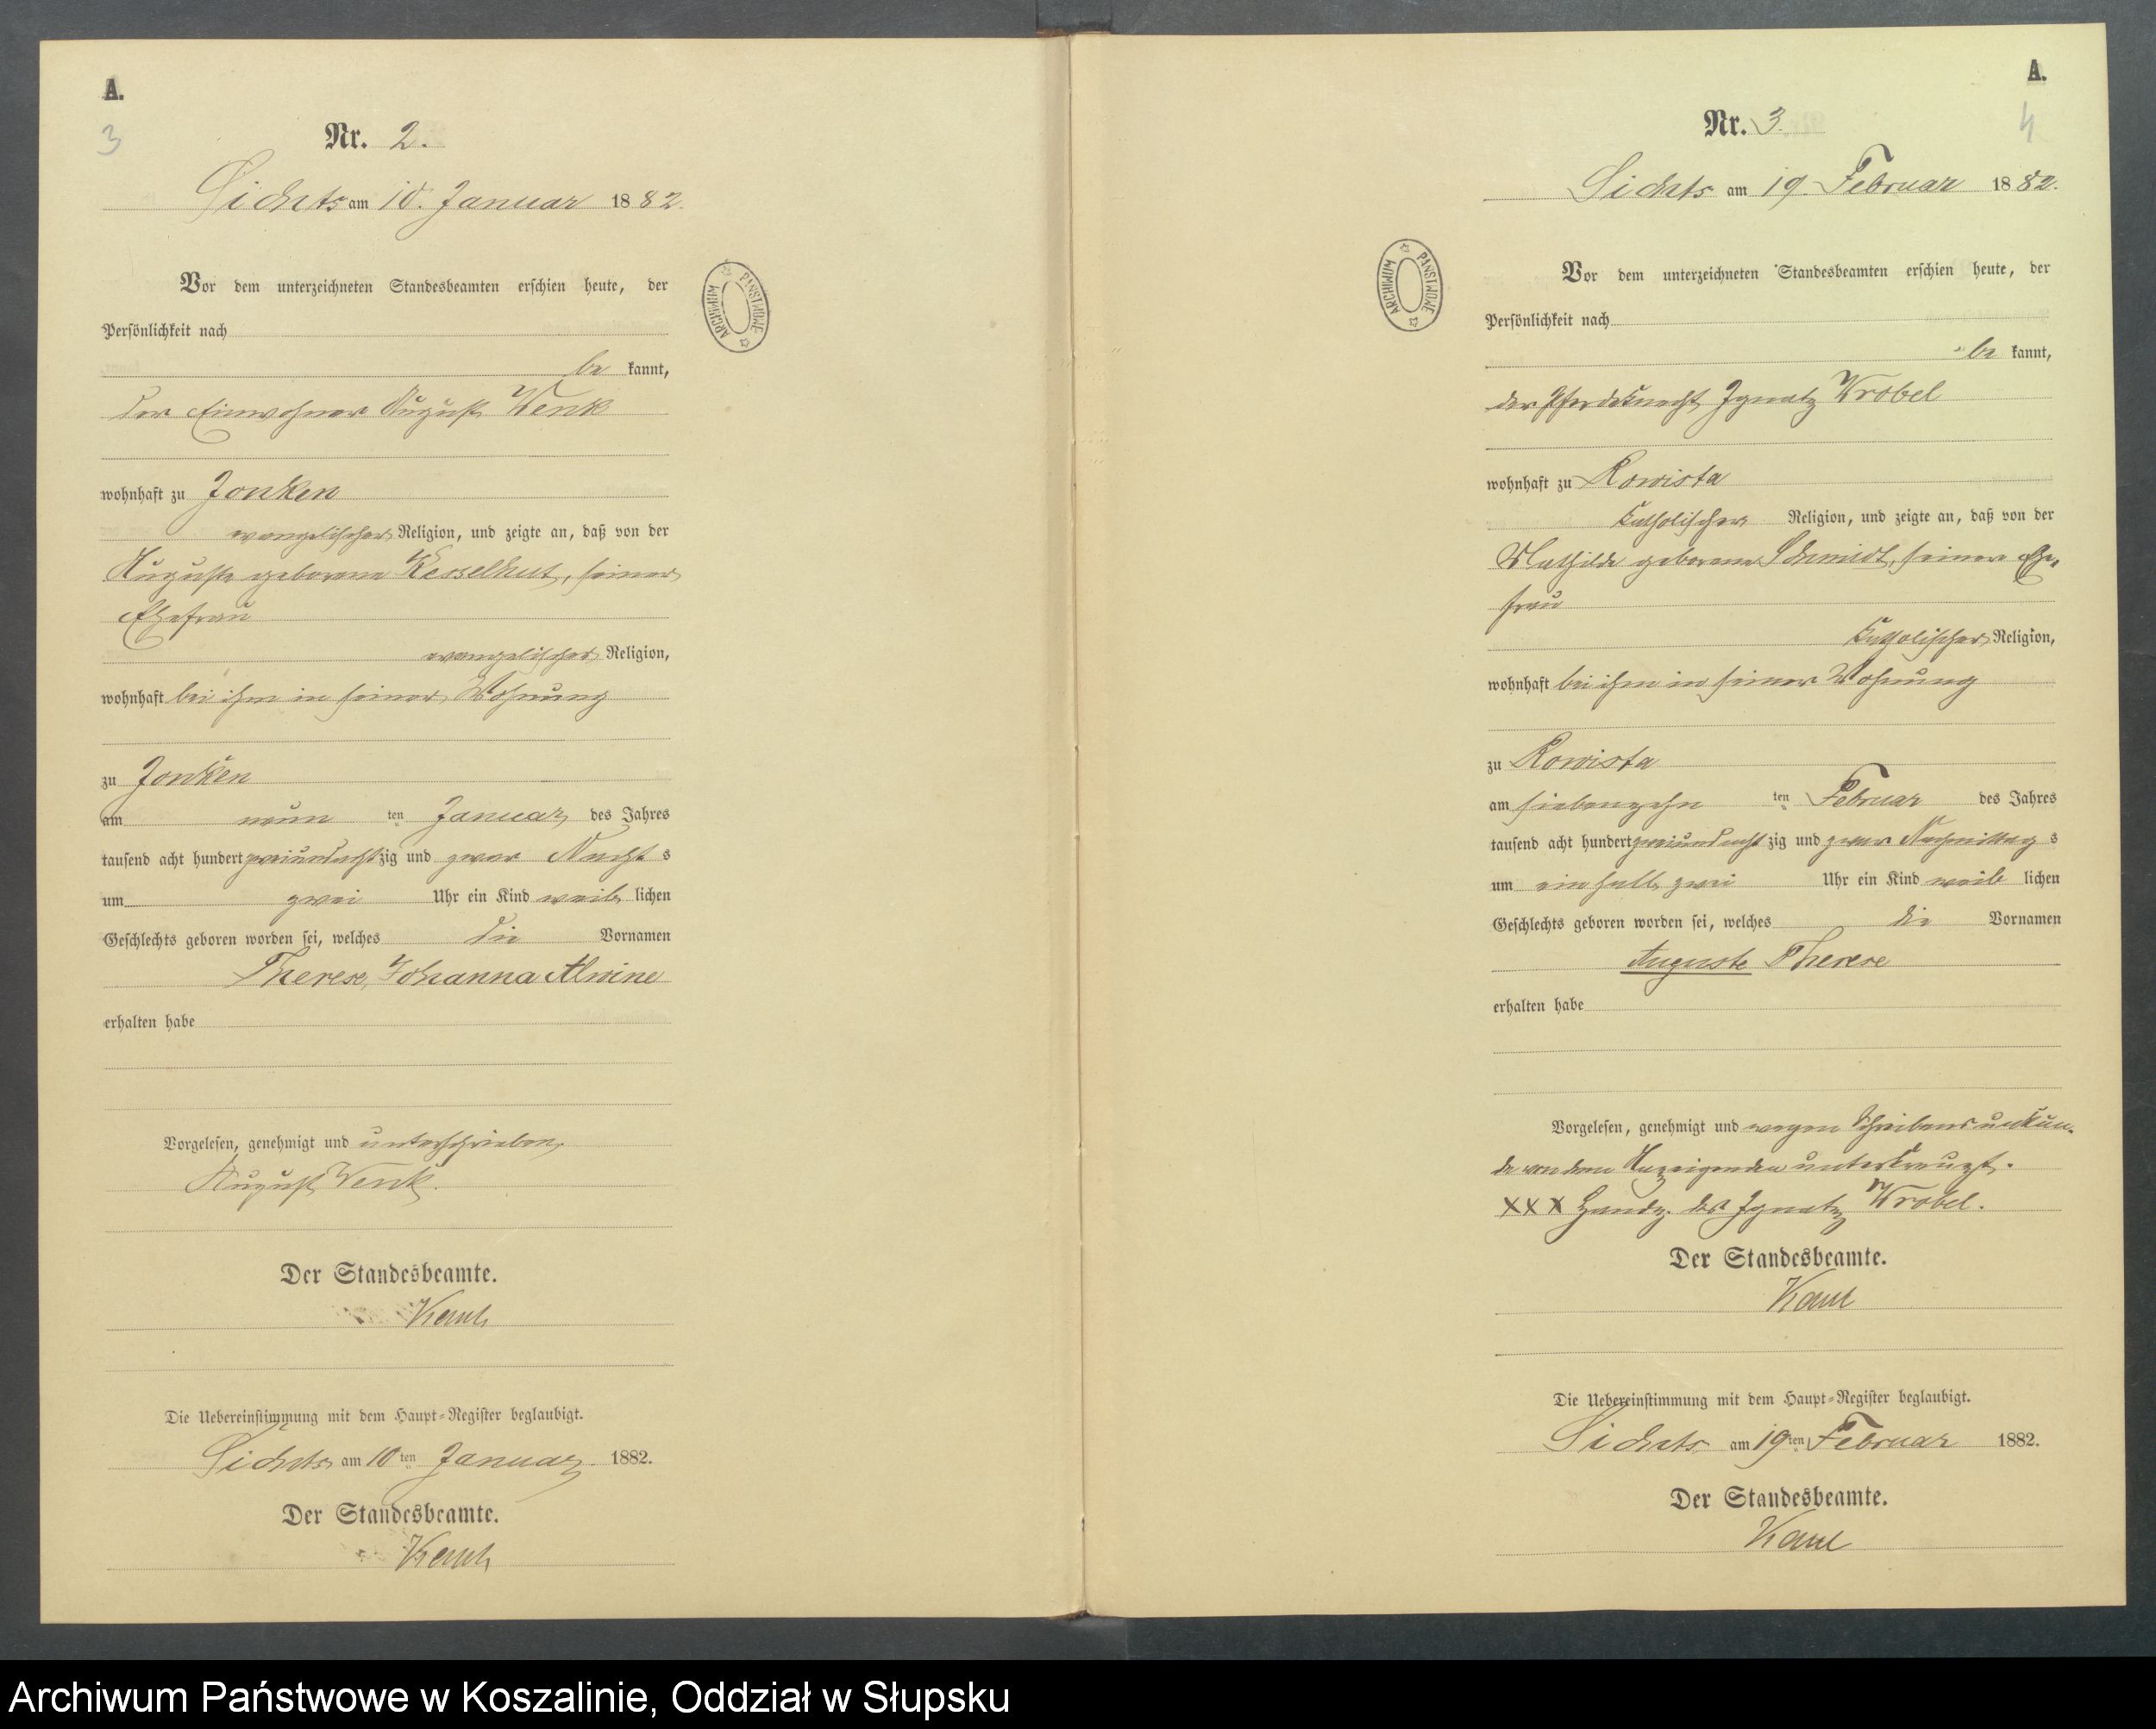 A.
3
Nr. 2.
Sichts am 10. Januar 1882.
Vor dem unterzeichneten Standesbeamten erschien heute, der
Persönlichkeit nach
be kannt,
der Einwohner August Wenk
wohnhaft zu Jonken
evangelischer Religion, und zeigte an, daß von der
Auguste geborene Kesselhut, seiner
Ehefrau
evangelischer Religion,
wohnhaft bei ihm in seiner Wohnung
zu Jonken
am neun ten Januar des Jahres
tausend acht hundert zweiundacht zig und zwar Nacht s
um zwei Uhr ein Kind weib lichen
Geschlechts geboren worden sei, welches die Vornamen
Therese, Johanna Alwine
erhalten habe
Vorgelesen, genehmigt und unterschrieben
August Wenk.
Der Standesbeamte.
Kaul
Die Uebereinstimmung mit dem Haupt-Register beglaubigt.
Sichts am 10ten Januar 1882.
Der Standesbeamte.
Kaul
ARCHIWUM PAŃSTWOWE
A.
4
Nr. 3.
Sichts am 19. Februar 1882.
Vor dem unterzeichneten Standesbeamten erschien heute, der
Persönlichkeit nach
be kannt,
der Pferdeknecht Ignatz Wrobel
wohnhaft zu Rowista
katholischer Religion, und zeigte an, daß von der
Mathilde geborene Schmidt, seiner Ehe-
frau
katholischer Religion,
wohnhaft bei ihm in seiner Wohnung
zu Rowista
am siebenzehn ten Februar des Jahres
tausend acht hundert zweiundacht zig und zwar Nachmittag s
um ein halb zwei Uhr ein Kind weib lichen
Geschlechts geboren worden sei, welches die Vornamen
Auguste Therese
erhalten habe
Vorgelesen, genehmigt und wegen Schreibensunkun-
de von dem Anzeigenden unterkreuzt.
XXX Handz. des Ignatz Wrobel.
Der Standesbeamte.
Kaul
Die Uebereinstimmung mit dem Haupt-Register beglaubigt.
Sichts am 19ten Februar 1882.
Der Standesbeamte.
Kaul
ARCHIWUM PAŃSTWOWE
Archiwum Państwowe w Koszalinie, Oddział w Słupsku